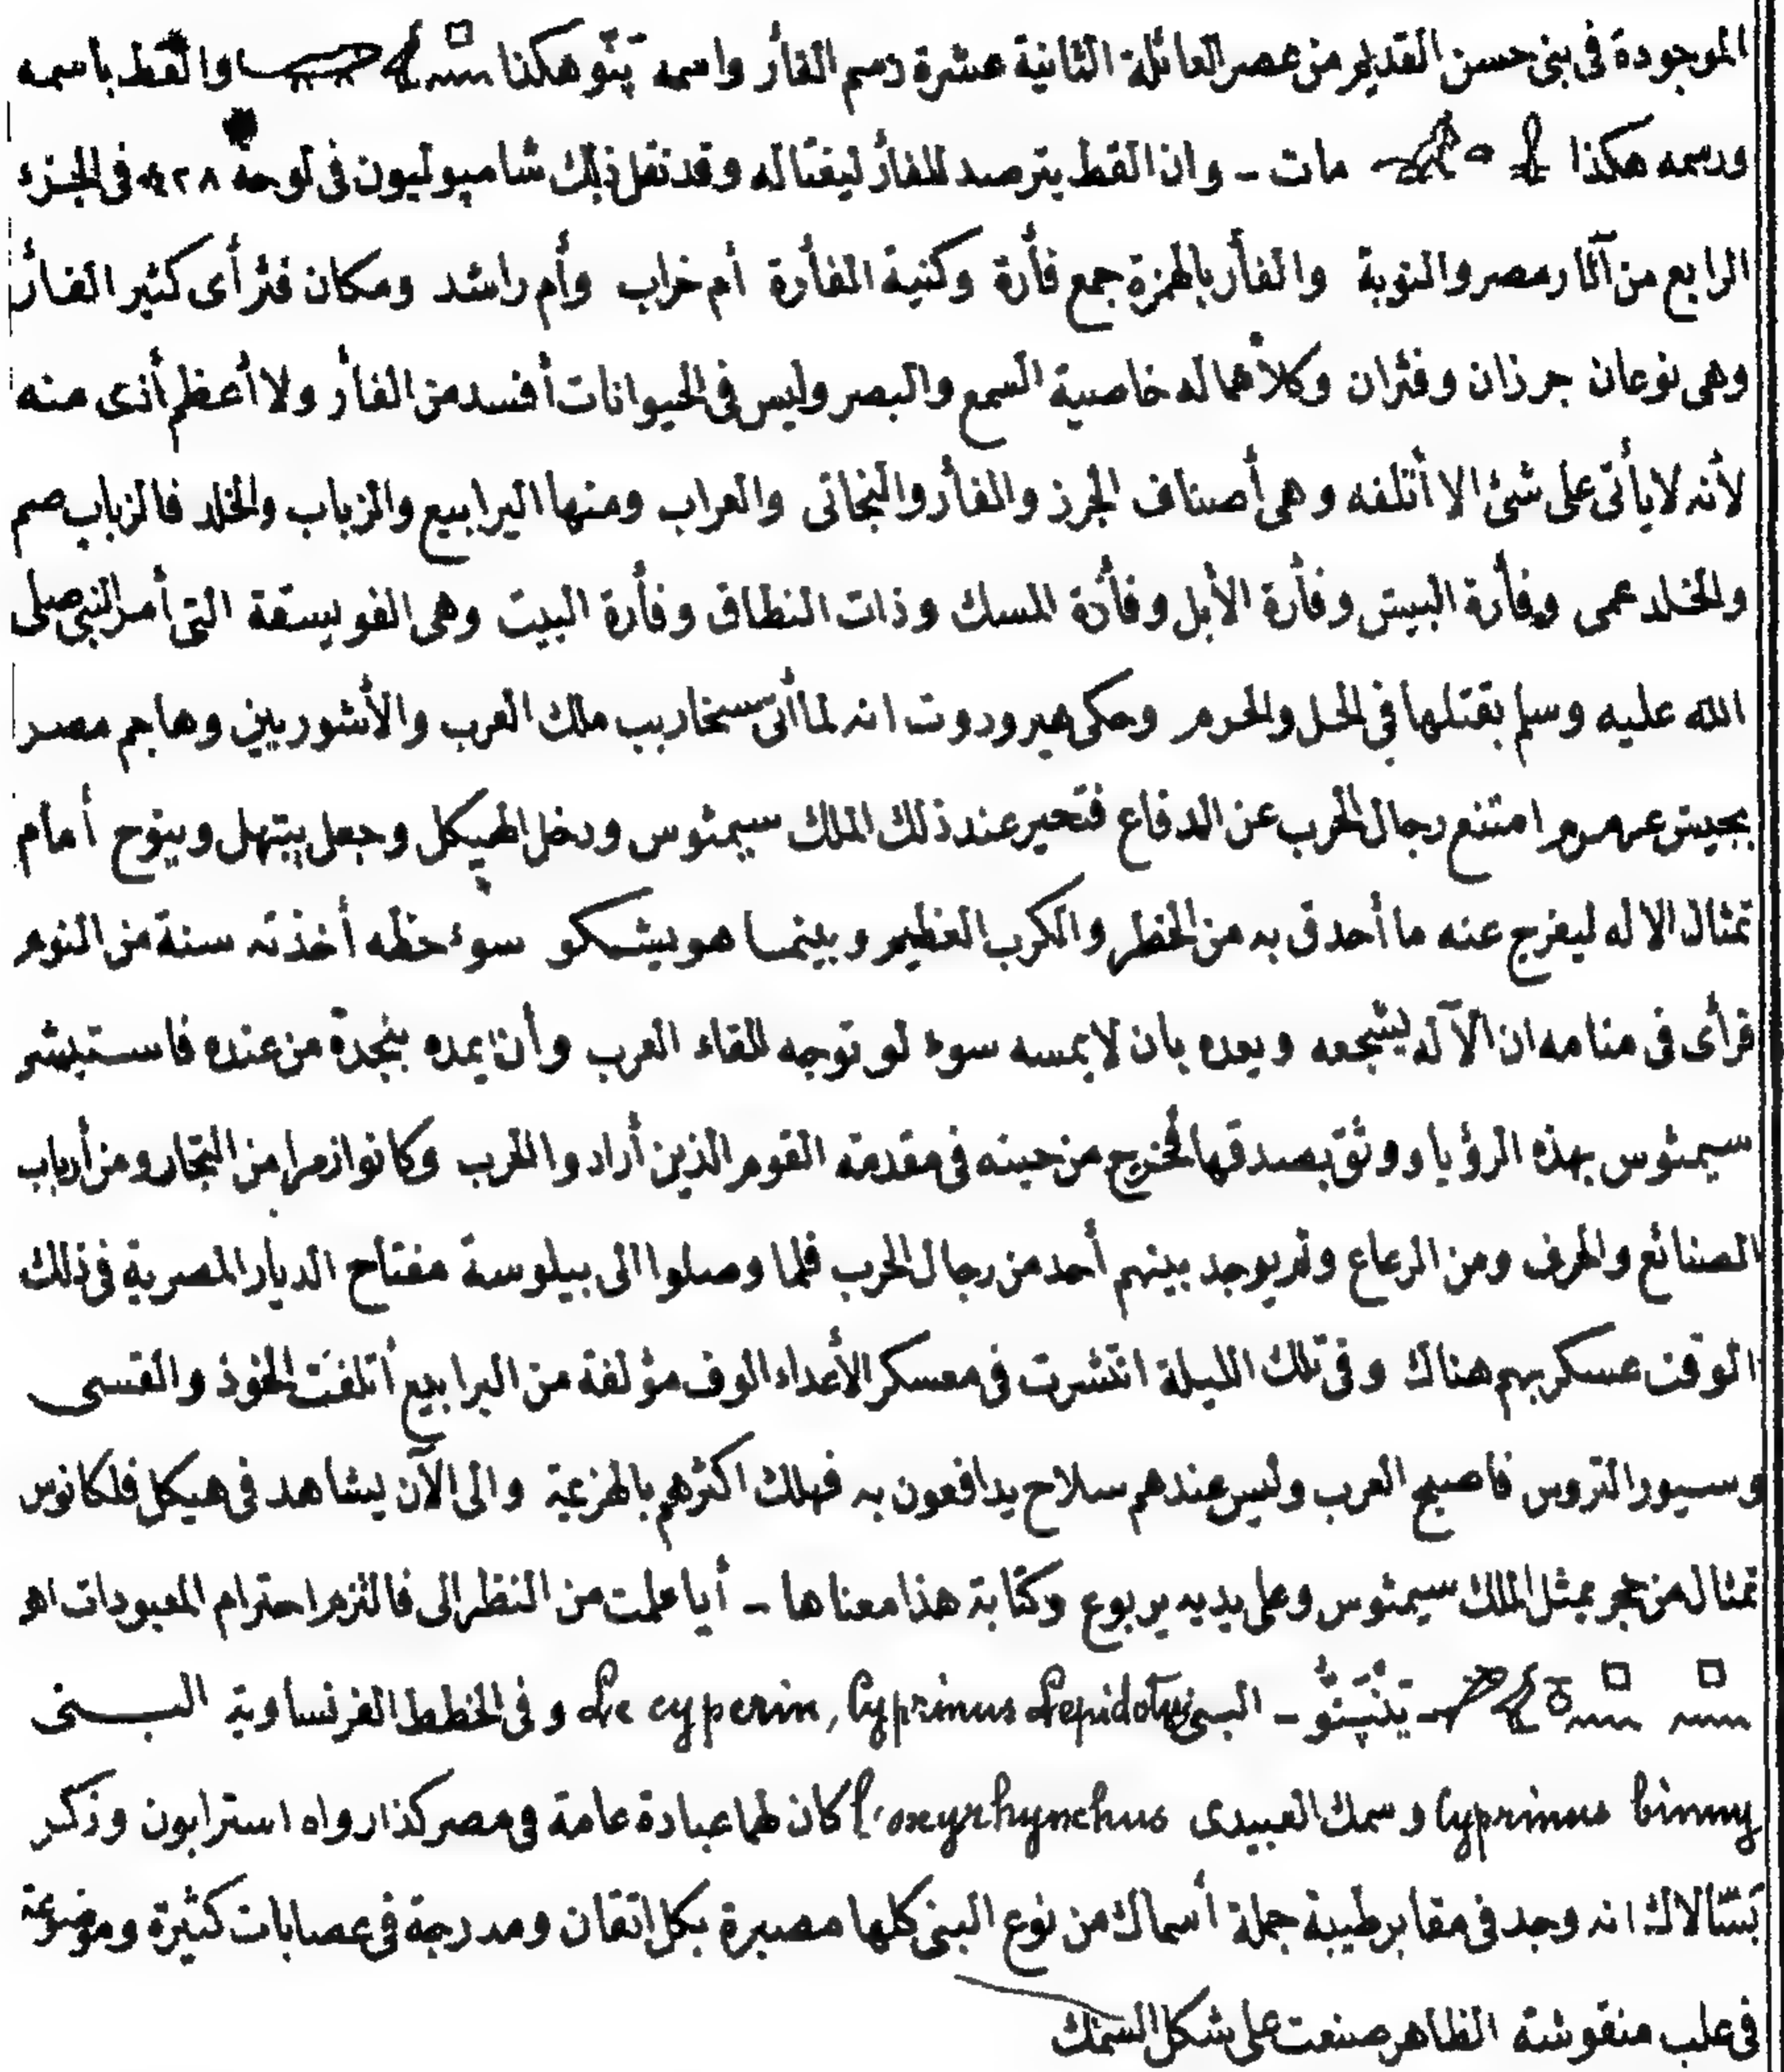 الموجودة فى بنى حسن القديم من عصر العائلة الثانية عشرة رسم الفأر واسمه پَنّو هكذا والقط باسمه
ورسمه هكذا مات - وان القط يترصد للفأر ليغتاله وقد نقل ذلك شامپوليون فى لوحة ٤٢٨ فى الجزء
الرابع من آثار مصر والنوبة والفأر بالهمزة جمع فأرة وكنية الفأرة أم خراب وأم راشد ومكان فئر أى كثير الفأر
وهى نوعان جرزان وفئران وكلاهما له خاصية السمع والبصر وليس فى الحيوانات أفسد من الفأر ولا أعظم أذى منه
لأنه لا يأتى على شئ الا أتلفه وهى أصناف الجرز والفأر والبخاتى والعراب ومنها اليرابيع والزباب والخلد فالزباب صم
والخلد عمى وفأرة البيش وفأرة الأبل وفأرة المسك وذات النطاق وفأرة البيت وهى الفويسقة التى أمر النبى صلى
الله عليه وسلم بقتلها فى الحل والحرم وحكى هيرودوت انه لما أتى سنخاريب ملك العرب والأشوريين وهاجم مصر
بجيش عرمرم امتنع رجال الحرب عن الدفاع فتحير عند ذلك الملك سيمثوس ودخل الهيكل وجعل يبتهل وينوح أمام
تمثال الاله ليفرج عنه ما أحدق به من الخطر والكرب العظيم وبينما هو يشكو سوء حظه أخذته سنة من النوم
فرأى فى منامه ان الآله يشجعه ويعده بان لا يمسه سوء لو توجه للقاء العرب وأن يمده بنجدة من عنده فاستبشر
سيمثوس بهذه الرؤيا ووثق بصدقها فخرج من حينه فى مقدمة القوم الذين أرادوا الحرب وكانوا زمرا من التجار ومن أرباب
الصنائع والحرف ومن الرعاع ولم يوجد بينهم أحد من رجال الحرب فلما وصلوا الى بيلوسة مفتاح الديار المصرية فى ذلك
الوقت عسكر بهم هناك وفى تلك الليلة انتشرت فى معسكر الأعداء الوف مؤلفة من اليرابيع أتلفت الخوذ والقسى
وسيور التروس فاصبح العرب وليس عندهم سلاح يدافعون به فهلك اكثرهم بالهزيمة والى الآن يشاهد فى هيكل فلكانوس
تمثال من حجر يمثل الملك سيمثوس وعلى يديه يربوع وكتابة هذا معناها - أيا علمت من النظر الى فالتزم احترام المعبودات اه
پنپنو - البنى Le cyperin, Cyprinus Lepidotus وفى الخطط الفرنساوية البنى
Cyprinus binny وسمك القبيدى l'oxyrhynchus كان لهما عبادة عامة فى مصر كذا رواه استرابون وذكر
بَسّالاك انه وجد فى مقابر طيبة جملة أسماك من نوع البنى كلها مصبرة بكل اتقان ومدرجة فى عصابات كثيرة وموضوعة
فى علب منقوشة الظاهر صنعت على شكل السمك